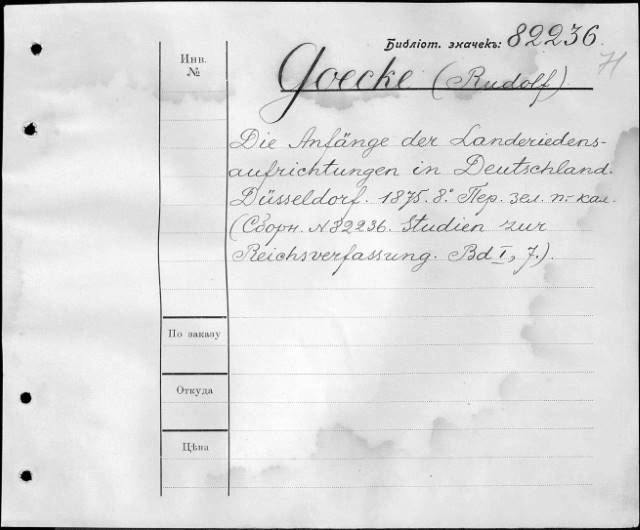 Библіот. значекъ: 82236.
71
Инв.
№
Goecke (Rudolf)
Die Anfänge der Landeriedens-
aufrichtungen in Deutschland.
Düsseldorf. 1875. 8º. Пер. зел. п.-кал.
(Сборн. N 82236. Studien zur
Reichsverfassung. Bd I, 7.).
По заказу
Откуда
Цѣна